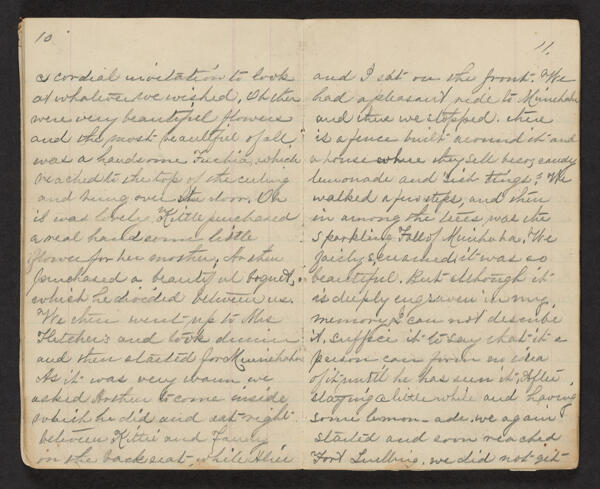 10
a cordial invitation to look
at whatever we wished. Oh there
were very beautiful flowers
and the most beautiful of all
was a handsome Fuchia, which
reached to the top of the ceiling
and hung over the door. Oh
it was lovely. Kittie purchased
a real handsome little
flower for her mother. Arthur
purchased a beautiful boquet,
which he divided between us.
We then went up to Mrs
Fletcher's and took dinner
and then started for Minnehaha
As it was very warm we
asked Arthur to come inside
which he did and sat right
between Kittie and
in the back seat, while
11.
and I sat on the front. We
had a pleasant ride to Minnehaha
and there we stopped. There
is a fence built around it and
a house where they sell beer, candy
lemonade and sich things. We
walked a few steps, and then
in among the trees, was the
sparkling Falls of Minnehaha. We
fairly screamed it was so
beautiful. But although it
is deeply engraven in my
memory I can not describe
it, suffice it to say that it a
person can form no idea
of it until he has seen it. After
staying a little while and having
some lemon-ade. we again
started and soon reached
Fort Snelling. we did not git